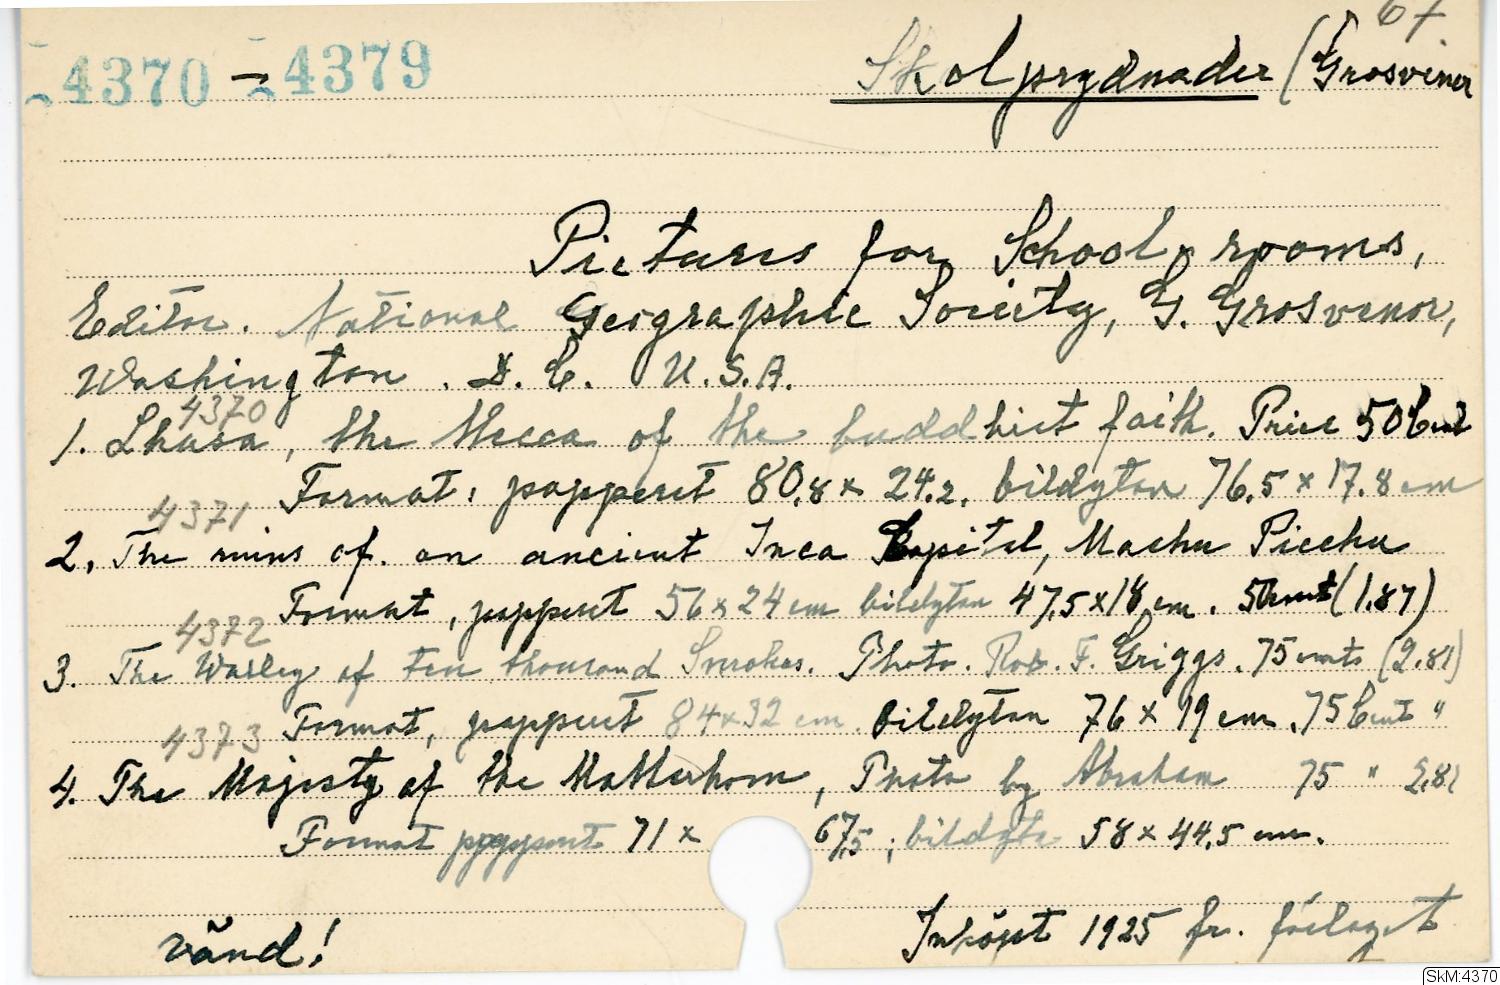 67.
4370 – 4379 Skolprydnader (Grosvenor
Pictures for School rooms,
Editor. National Geographic Society, G. Grosvenor,
Washington. D. C. U.S.A.
4370
1. Lhasa, the Mecca of the buddhist faith. Price 50 Cent
Format: papperet 80,8 x 24.2. bildytan 76.5 x 17.8 cm
4371
2. The ruins of an ancient Inca Capital, Machu Picchu
Format, papperet 56 x 24 cm bildytan 47,5 x 18 cm. 50 cent (1.87)
4372
3. The Walley of ten thousand Smokes. Photo. Rob. F. Griggs. 75 cents (2.81)
Format, papperet 84 x 32 cm. bildytan 76 x 19 cm. 75 Cent "
4373
4. The Majesty of the Matterhorn, Photo by Abraham 75 " 2,81
Format papperet 71 x 67,5; bildyta 58 x 44,5 cm.
vänd! Inköpt 1925 fr. förlaget
SkM:4370